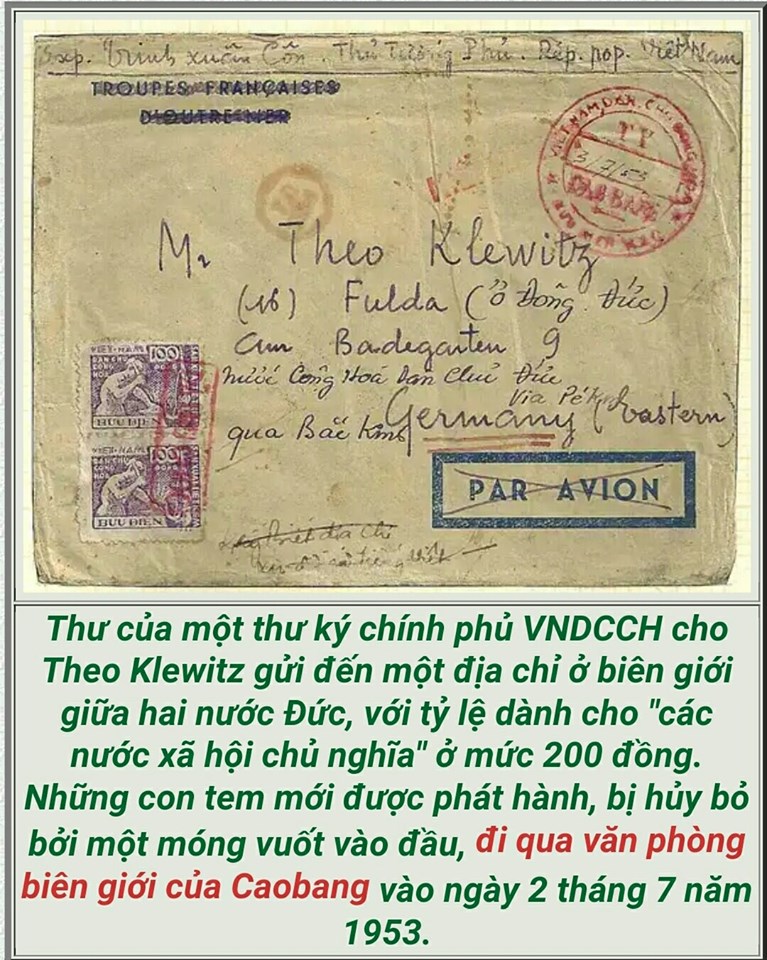 Exp. Trịnh xuân Cồn. Thủ Tướng Phủ. Rép. pop. Việt Nam
TROUPES FRANÇAISES
D'OUTRE-MER
VIET NAM DAN CHU CONG HOA
3/7/53
CAO BANG
Mr Theo Klewitz
(16) Fulda (ở Đông Đức)
am Badegarten 9
nước Cộng Hoà Dân Chủ Đức
Via Pékin
qua Bắc Kinh Germany (Eastern)
VIET-NAM 100
DAN CHU
CONG
HOA
BUU ĐIEN
VIET-NAM 100
DAN CHU
CONG
HOA
BUU ĐIEN
PAR AVION
Thư của một thư ký chính phủ VNDCCH cho
Theo Klewitz gửi đến một địa chỉ ở biên giới
giữa hai nước Đức, với tỷ lệ dành cho "các
nước xã hội chủ nghĩa" ở mức 200 đồng.
Những con tem mới được phát hành, bị hủy bỏ
bởi một móng vuốt vào đầu, đi qua văn phòng
biên giới của Caobang vào ngày 2 tháng 7 năm
1953.